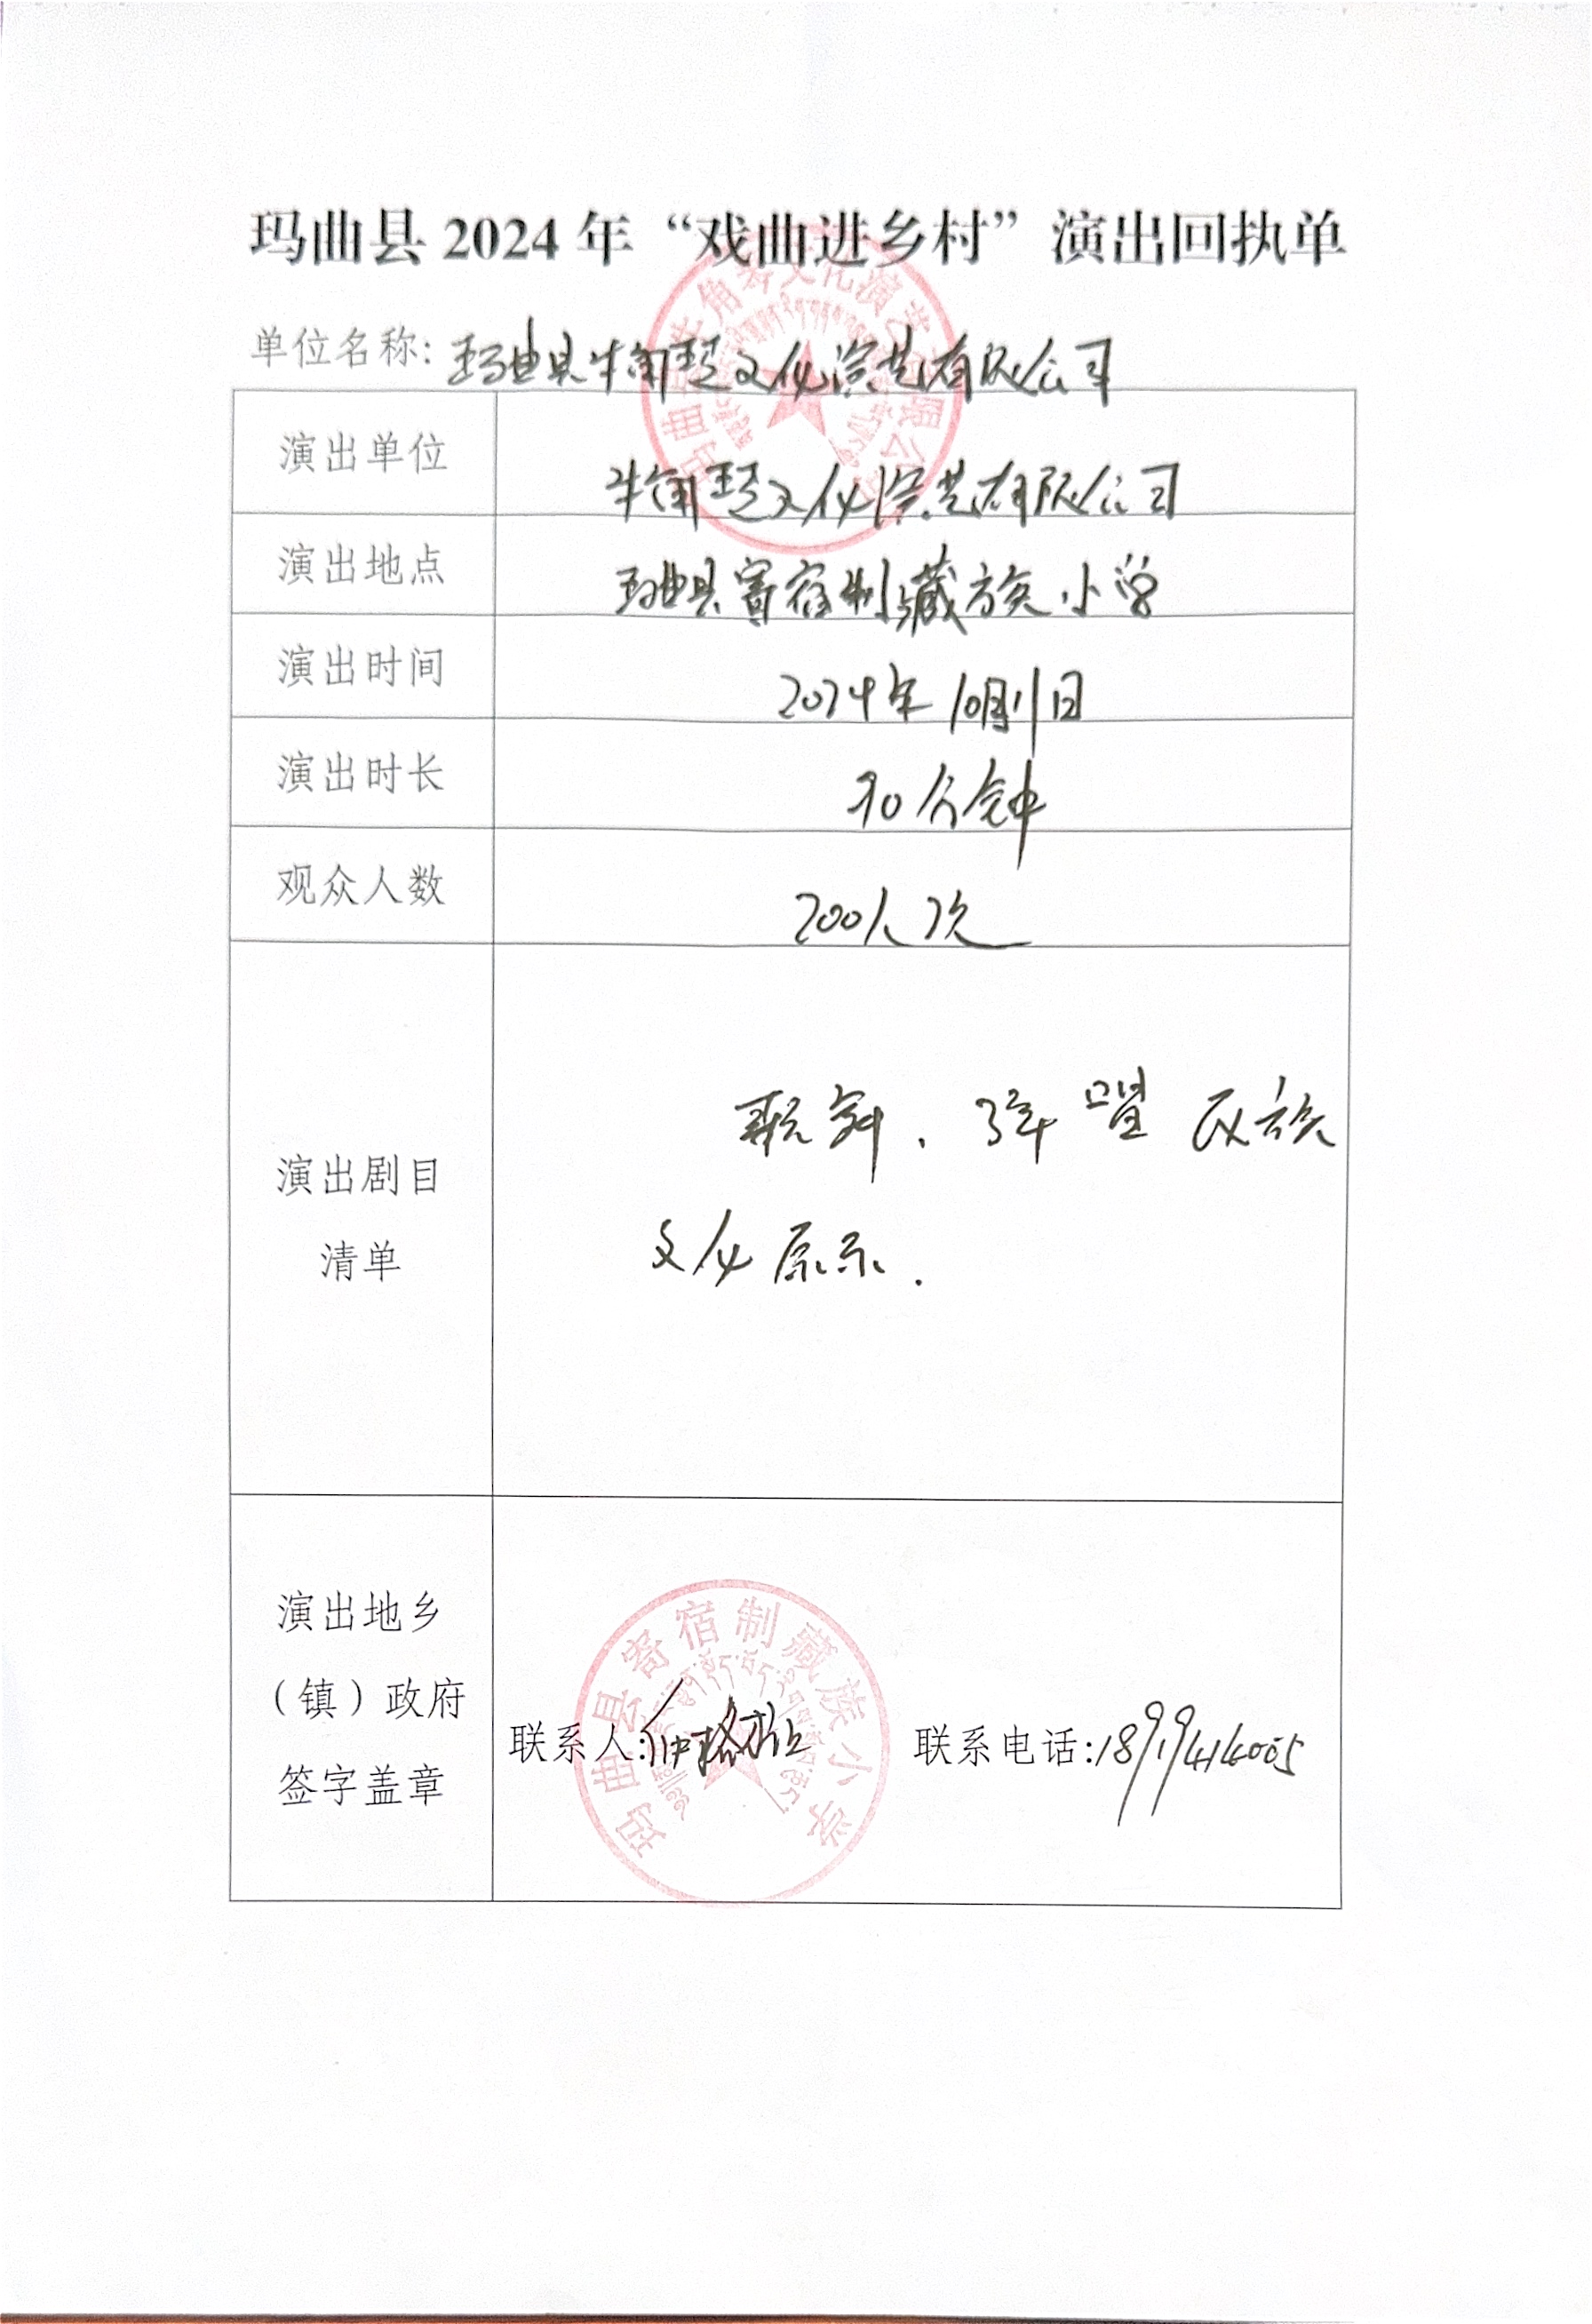 玛曲县 2024 年“戏曲进乡村”演出回执单
单位名称: 玛曲县牛角琴文化演艺有限公司
演出单位
牛角琴文化演艺有限公司
演出地点
玛曲县寄宿制藏族小学
演出时间
2024年10月11日
演出时长
90分钟
观众人数
200人次
演出剧目
清单
歌舞、弹唱 民族
文化展示.
演出地乡
（镇）政府
签字盖章
联系人:
联系电话:18919414005
玛曲县寄宿制藏族小学